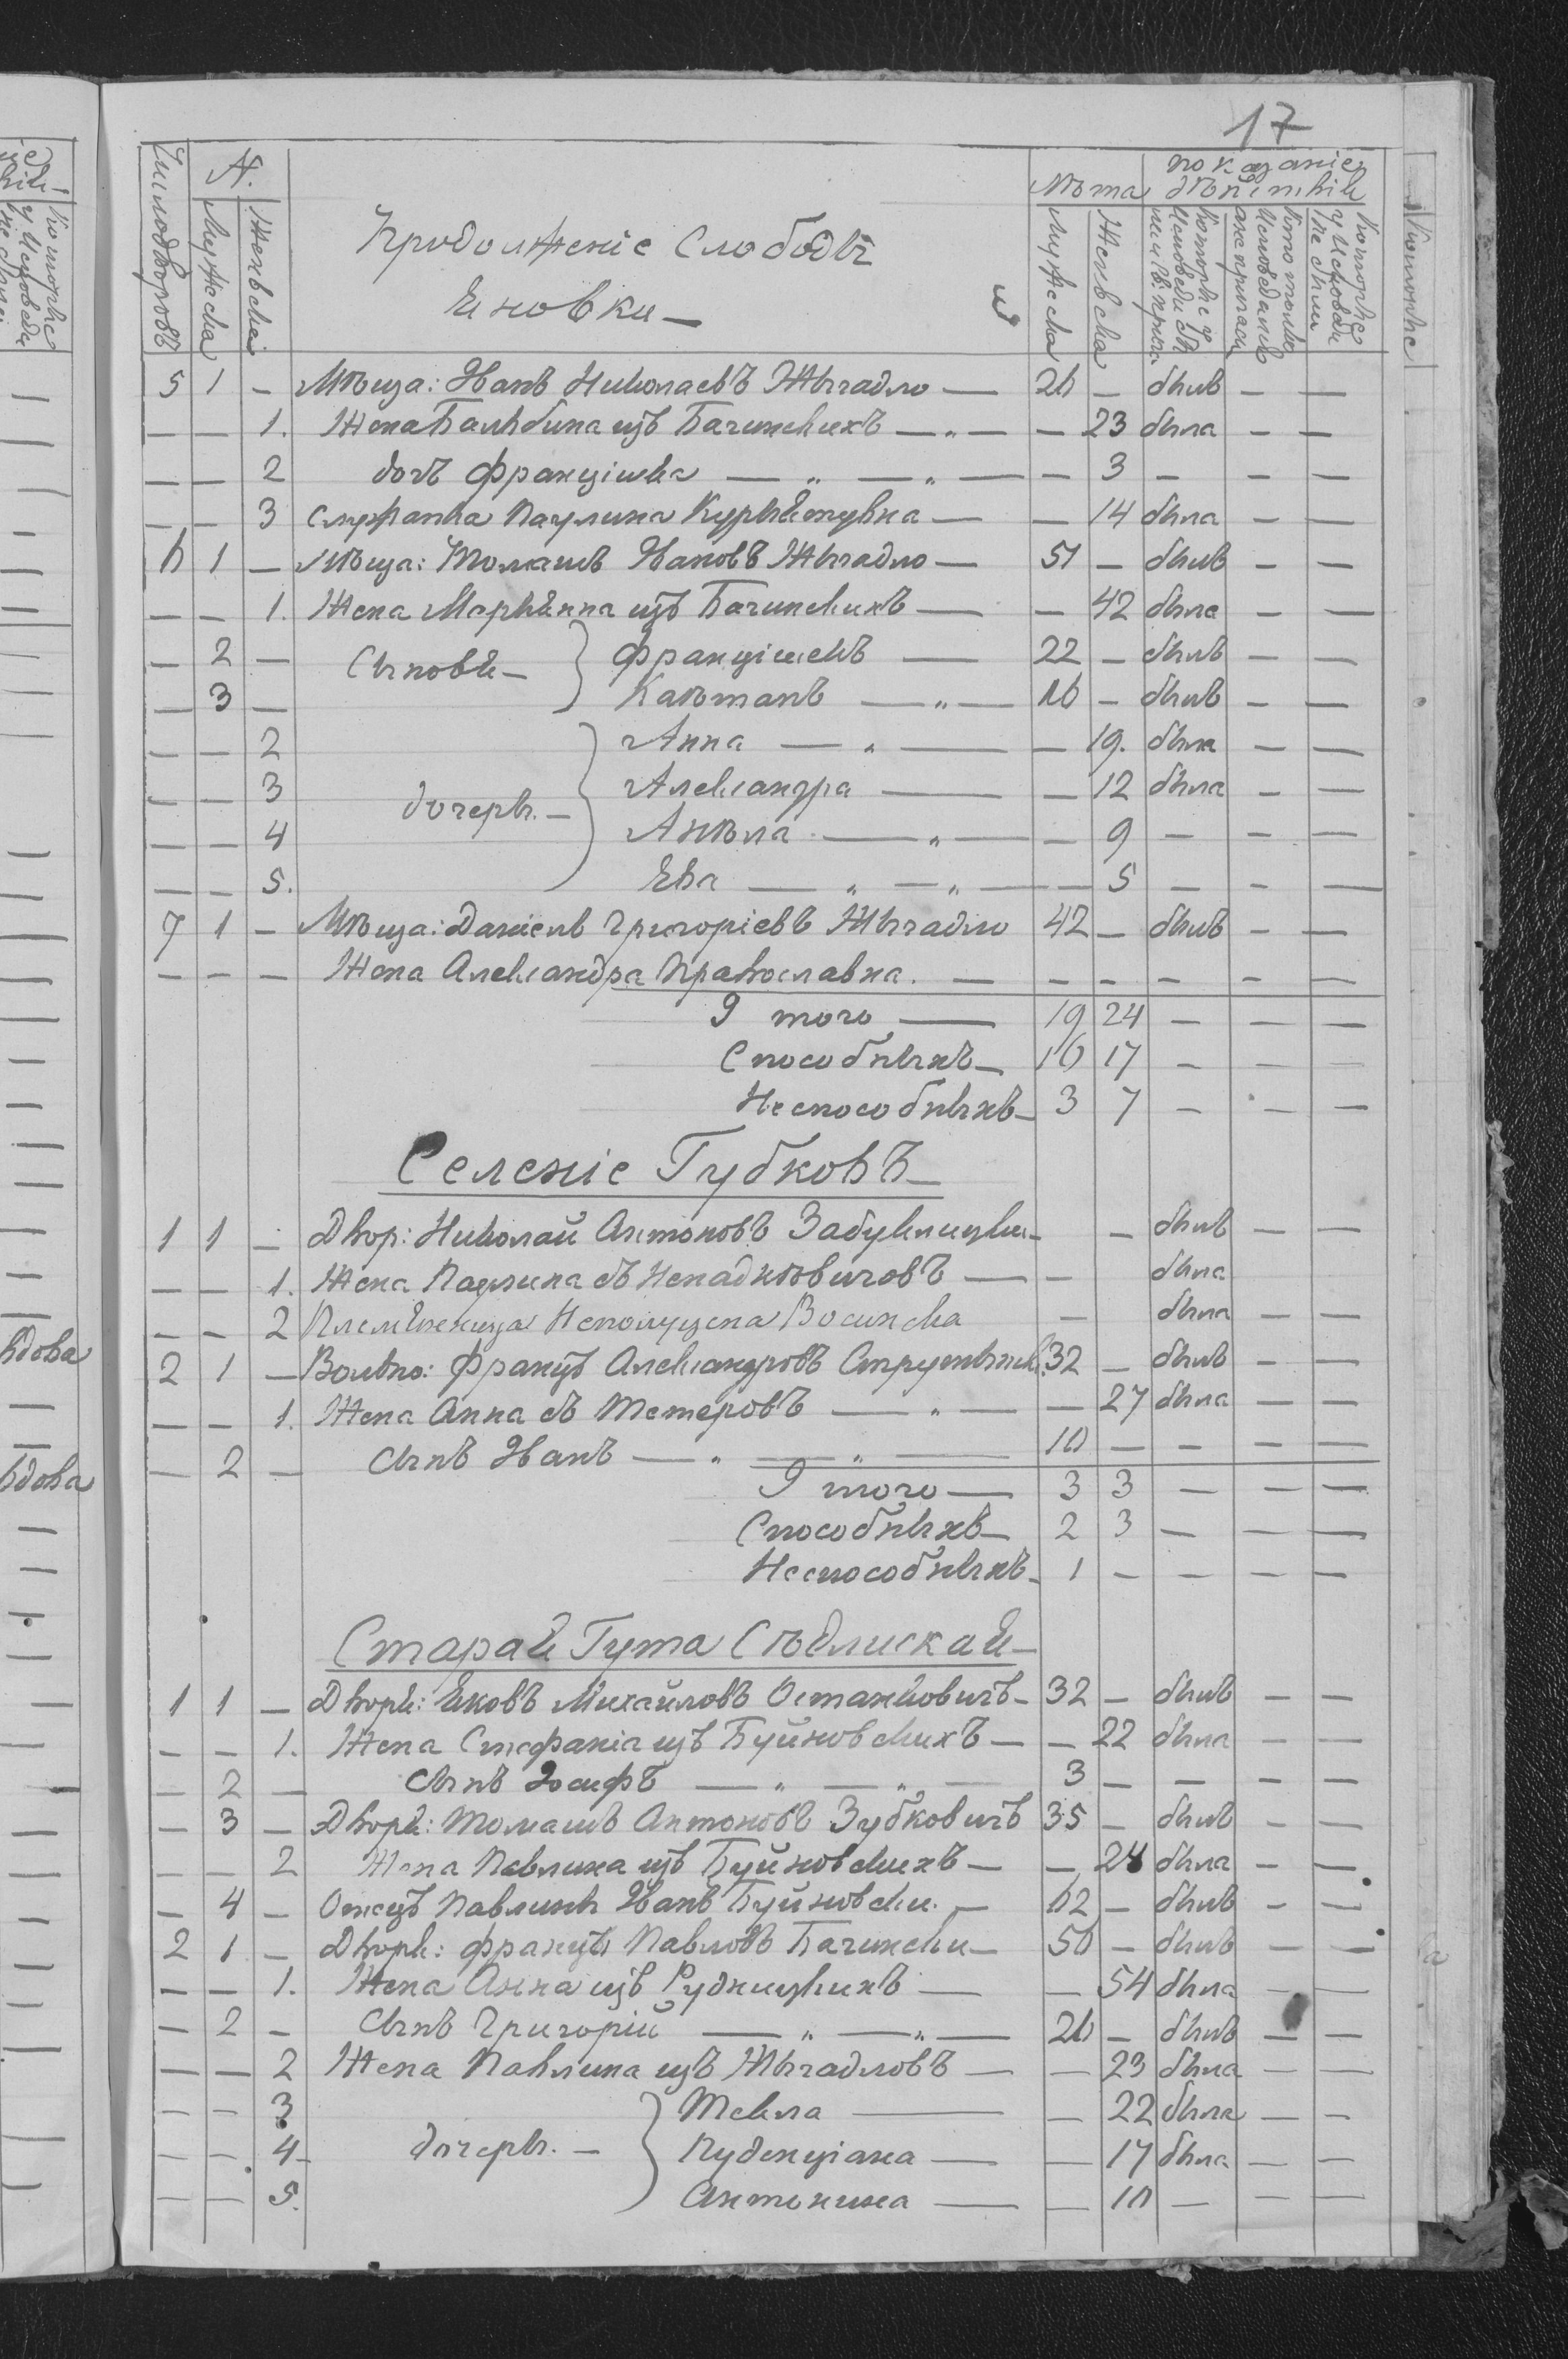 17
Число дворовъ
N.
Мужеска
Женьска
Продолженіе Слободы
Яновки —
Лѣта
Мужеска
Женьска
показаніе
Которые у
Исповеди
Кто только
Исповедани
а не причаси
Которые
у Исповеди
не были
5 1 — Мѣща: Иванъ Николаевъ Жыгадло — 26 — былъ — —
— — 1. Жена Бальбина изъ Багинскихъ — „ — — 23 была — —
— — 2 дочъ Францішка — „ — „ — — 3 — — —
— — 3 служанка Паулина — — 14 была — —
6 1 — Мѣща: Томашъ Ивановъ Жыгадло — 51 — былъ — —
— — 1. Жена Марыянна изъ Багинскихъ — — 42 была — —
— 2 — Сыновя — Францішекъ — 22 — былъ — —
— 3 — Каѣтанъ — „ — 16 — былъ — —
— — 2 Анна — „ — — 19. была — —
— — 3 дочеры. — Александра — — 12 была — —
— — 4 Анѣла — „ — — 9 — — —
— — 5. Ева — „ — „ — — 5 — — —
7 1 — Мѣща: Даніелъ Григоріевъ Жыгадло 42 — былъ — —
— — — Жена Александра Православна. — — — — — —
Итого — 19 24 — — —
Способныхъ — 16 17 — — —
Неспособныхъ — 3 7 — — —
Селеніе Губковъ —
1 1 — Двор: Николай Антоновъ — — былъ — —
— — 1. Жена Паулина съ — — была
— — 2 Племянница Непомуцена Восинска — была — —
2 1 — Вольно: Францъ Александровъ 32 — былъ — —
— — 1. Жена Анна съ Тетеровъ — „ — — 27 была — —
— 2 — Сынъ Иванъ — „ — „ — 10 — — — —
Итого — 3 3 — — —
Способныхъ — 2 3 — — —
Неспособныхъ — 1 — — — —
Старая Гута Сѣдлиская —
1 1 — Дворя: Яковъ Михайловъ Останковичъ — 32 — былъ — —
— — 1. Жена Стефанія изъ Буйновскихъ — — 22 была — —
— 2 — Сынъ Іосифъ — „ — „ — 3 — — — —
— 3 — Дворя: Томашъ Антоновъ Зубковичъ 35 — былъ — —
— — 2 Жена Павлина изъ Буйновскихъ — — 24 была — —
— 4 — Отецъ Павлины Иванъ Буйновски. — 62 — былъ — —
2 1 — Дворя: Францъ Павловъ Багински — 50 — былъ — —
— — 1. Жена Анна изъ Рудницкихъ — — 54 была — —
— 2 — Сынъ Григорій — „ — „ — 26 — былъ — —
— — 2 Жена Павлина изъ Жыгадловъ — — 23 была — —
— — 3 Текла — — 22 была — —
— — 4 — дочеры. — Пуденціана — — 17 была — —
— — 5. Антонина — — 10 — — —
вдова
вдова
Которые